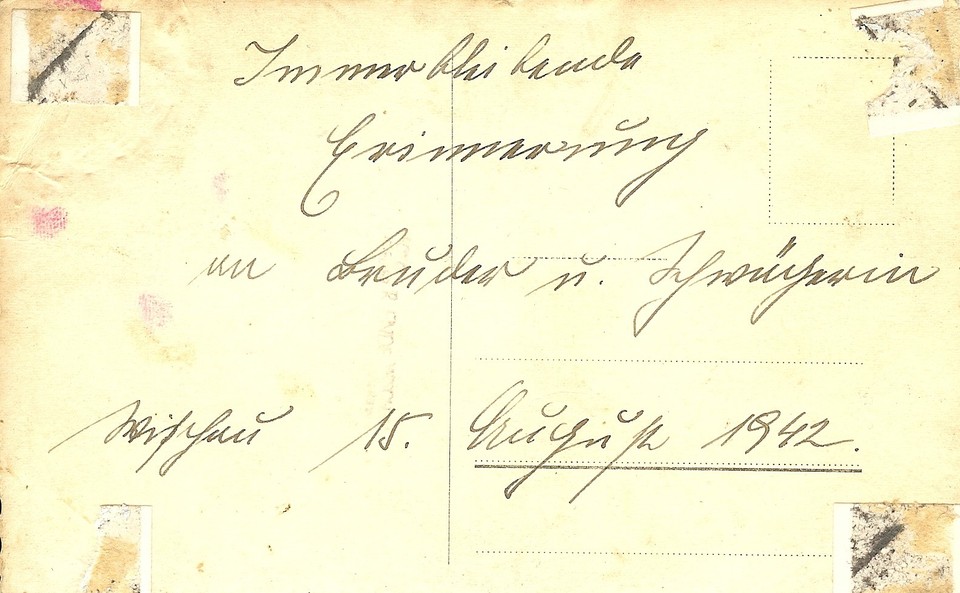 Immerbleibende
Erinnerung
an Bruder u. Schwägerin
Wischau 15. August 1942.